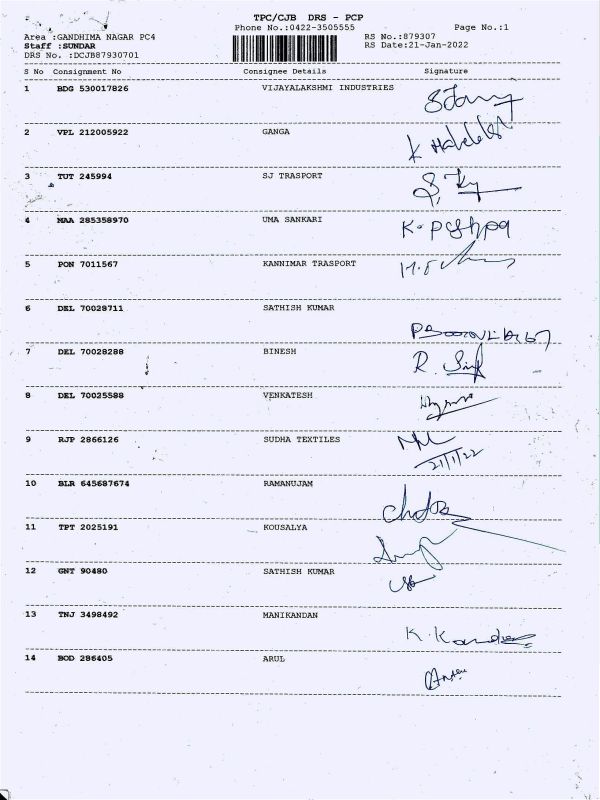 TPC/CJB DRS - PCP
Phone No.:0422-3505555 Page No.:1
Area :GANDHIMA NAGAR PC4 RS No.:879307
Staff :SUNDAR RS Date:21-Jan-2022
DRS No. :DCJB87930701
S No Consignment No Consignee Details Signature
1 BDG 530017826 VIJAYALAKSHMI INDUSTRIES
2 VPL 212005922 GANGA
3 TUT 245994 SJ TRASPORT
4 MAA 285358970 UMA SANKARI
5 PON 7011567 KANNIMAR TRASPORT
6 DEL 70028711 SATHISH KUMAR
7 DEL 70028288 BINESH
8 DEL 70025588 VENKATESH
9 RJP 2866126 SUDHA TEXTILES
21/1/22
10 BLR 645687674 RAMANUJAM
11 TPT 2025191 KOUSALYA
12 GNT 90480 SATHISH KUMAR
13 TNJ 3498492 MANIKANDAN
14 BOD 286405 ARUL